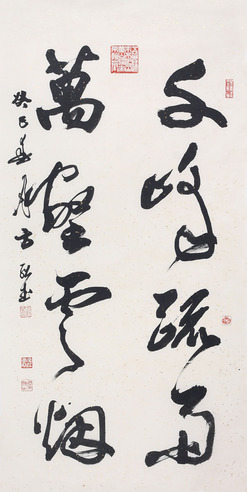 千峰疏雨
萬壑雲烟
癸巳春月